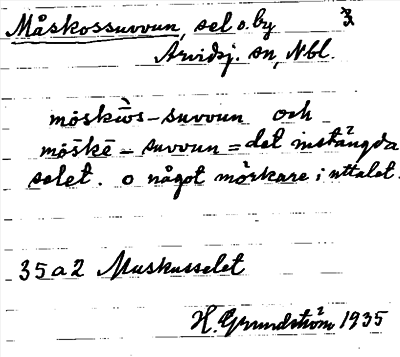 Måskossuvvun, sel o. by 3
Arvidsj. sn, Nbl.
möskùos-suvvun och
möskē-suvvun = det instängda
selet. o något mörkare i uttalet.
35 a 2 Muskusselet
H. Grundström 1935